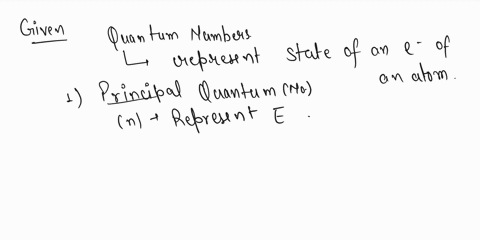 Given
Quantum Numbers
↳ represent state of an e⁻ of
an atom.
1) Principal Quantum (No)
(n) → Represent E .